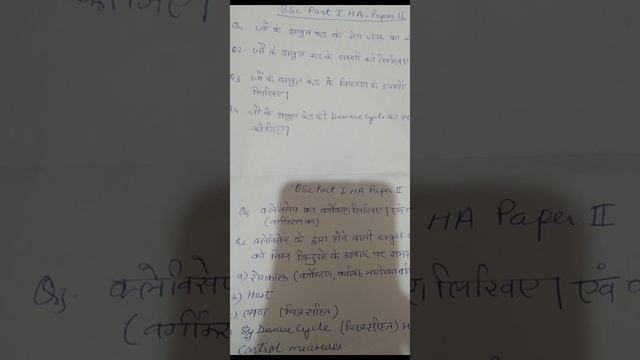 BSc Part I HA-Paper II
Q1 जौ के आवृत कंड के रोग जनक का
Q2. जौ के आवृत कंड के लक्षणों को लिखिए
Q3 जौ के आवृत कंड के नियंत्रण के उपायों
लिखिए।
Q4. जौ के आवृत कंड की Disease Cycle का
कीजिए।
BSc Part I HA Paper II
Q1 क्लेविसेप का वर्गीकरण लिखिए। एवं
Q2 क्लेविसेप के द्वारा होने वाली ergot
को निम्न बिन्दुओं के आधार पर
a) रोगकारक (वर्गीकरण, कायिक
b) Host
लक्षण (चित्रसहित)
Disease Cycle (चित्रसहित)
Control measures.
HA Paper II
क्लेविसेप
लिखिए। एवं